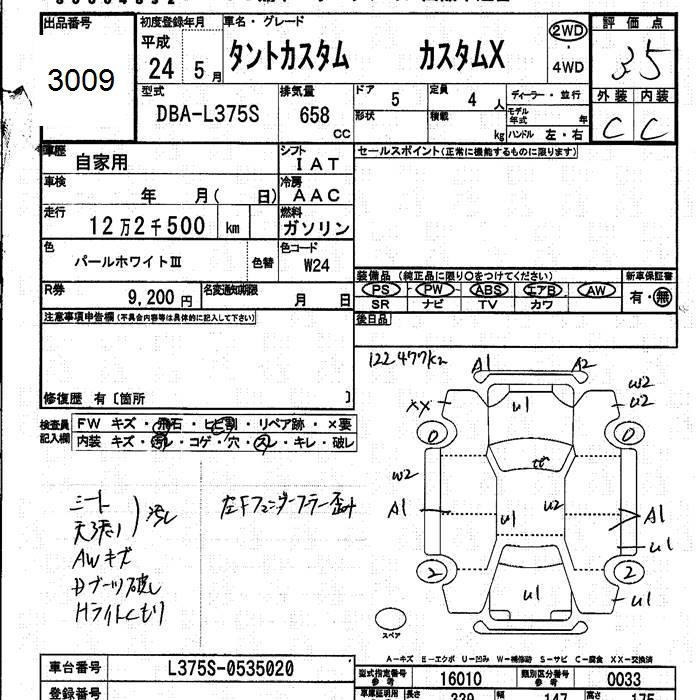 出品番号 初度登録年月 車名・グレード 2WD 評価点
平成 24 5月 タントカスタム カスタムX 4WD 3.5
3009
型式 DBA-L375S 排気量 658 CC ドア 5 定員 4人 ディーラー・並行 外装 内装
形状 積載 kg モデル年式 年 C C
ハンドル 左・右
車歴 自家用 シフト IAT セールスポイント(正常に機能するものに限ります)
車検 年 月( 日) 冷房 AAC
走行 12万2千500 km 燃料 ガソリン
色 パールホワイトⅢ 色替 色コード W24
装備品 (純正品に限り○をつけてください) 新車保証書
R券 9,200円 名変通知期限 月 日 PS PW ABS エアB AW 有・無
SR ナビ TV カワ
注意事項申告欄(不具合内容等は具体的に記入して下さい) 後日品
122477km A1 A2
W2
XX U1 U2
修復歴 有〔箇所 〕
検査員 FW キズ・飛石・ヒビ割・リペア跡・×要
記入欄 内装 キズ・汚レ・コゲ・穴・スレ・キレ・破レ
0 0
W2
シート 汚し 左Fフェンダーフラー歪み A1 U1 U2 A1
天張り
AWキズ U1
Dブーツ破し 2 2
Hライトくもり U1 U1
スペア
A-キズ E-エクボ U-凹み W-補修跡 S-サビ C-腐食 XX-交換済
車台番号 L375S-0535020 型式指定番号 参考 16010 類別区分番号 参考 0033
登録番号 長さ 339 幅 147 高さ 175